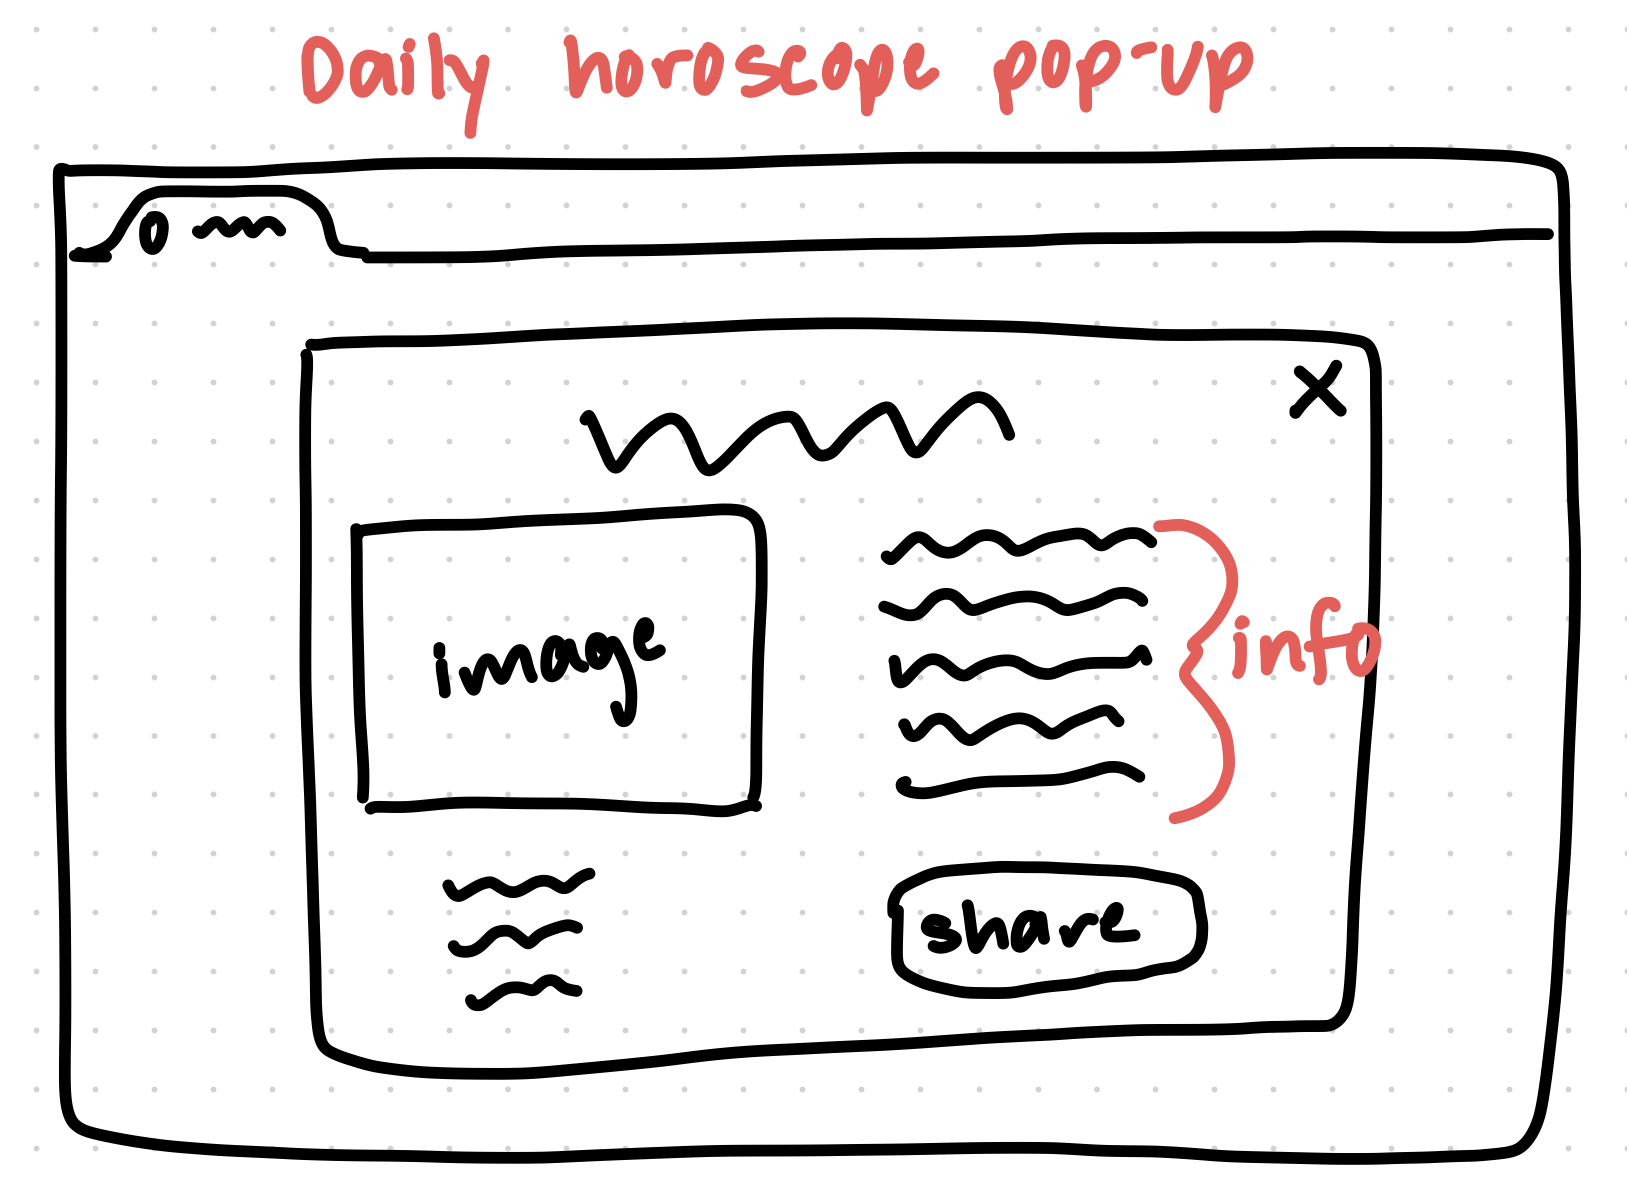 Daily horoscope pop-up
image
info
share